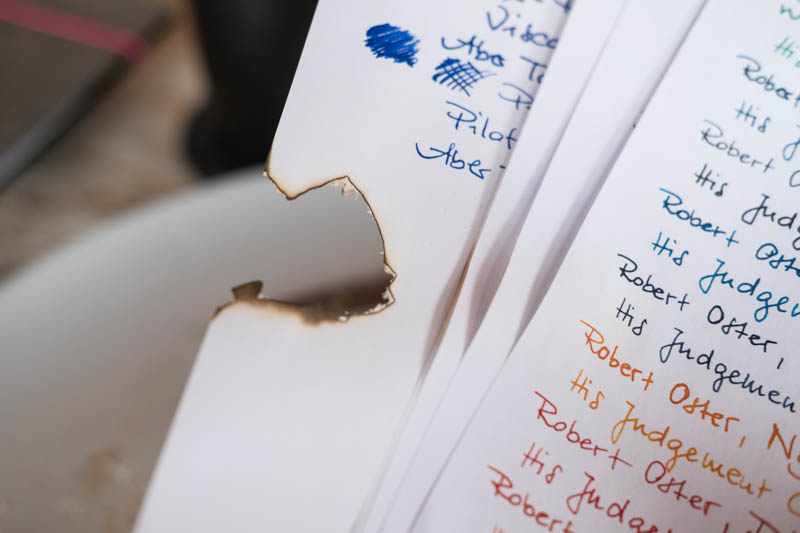 Visco
Aber T
P
Pilot
Aber
His
Robert
His J
Robert O
His Judg
Robert Oste
His Judgem
Robert Oster,
His Judgemen
Robert Oster, Ng
His Judgement
Robert Oster,
His Judgem
Robert